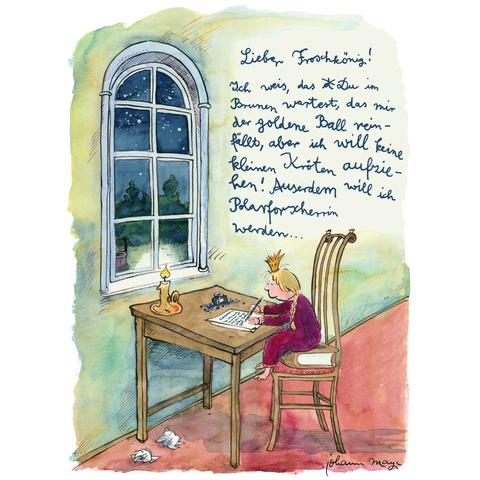 Lieber Froschkönig!
Ich weis, das Du im
Brunen wartest, das mir
der goldene Ball rein-
fällt, aber ich will keine
kleinen Kröten aufzie-
hen! Auserdem will ich
Polarforscherrin
werden...
johann mayr